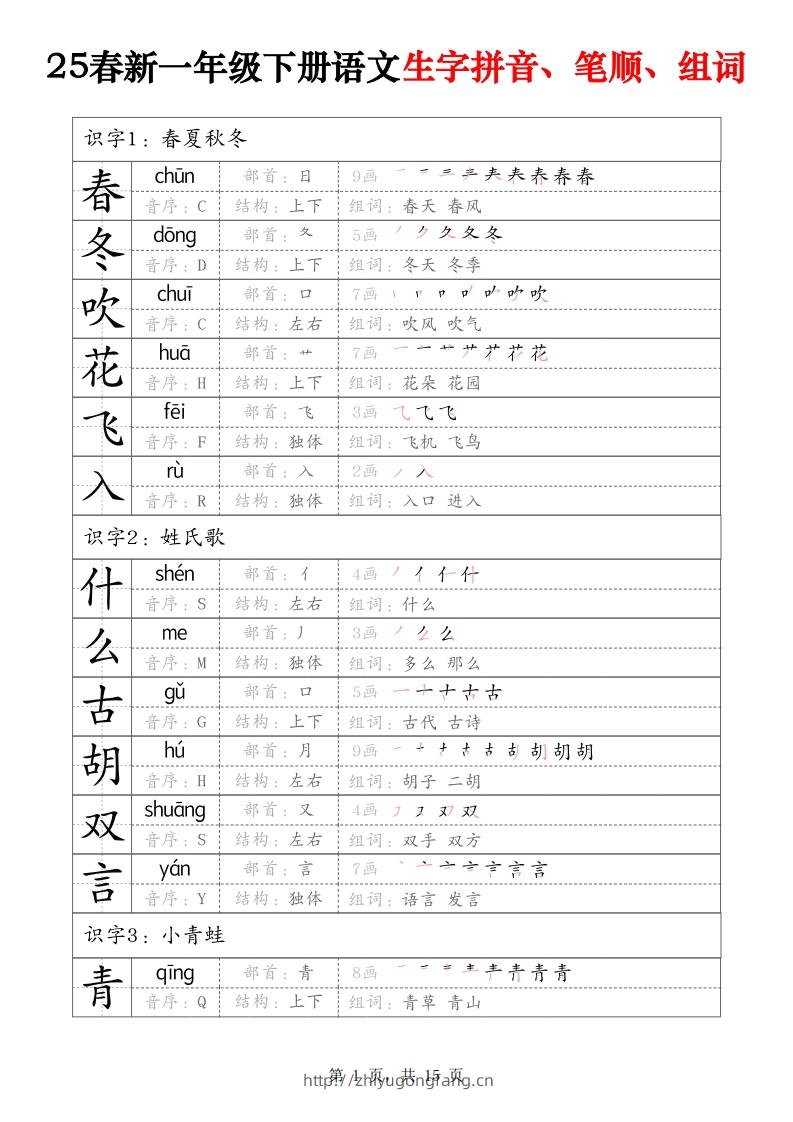 25春新一年级下册语文生字拼音、笔顺、组词
识字1：春夏秋冬
春 chūn 部首：日 9画
音序：C 结构：上下 组词：春天 春风
冬 dōng 部首：夂 5画
音序：D 结构：上下 组词：冬天 冬季
吹 chuī 部首：口 7画
音序：C 结构：左右 组词：吹风 吹气
花 huā 部首：艹 7画
音序：H 结构：上下 组词：花朵 花园
飞 fēi 部首：飞 3画
音序：F 结构：独体 组词：飞机 飞鸟
入 rù 部首：入 2画
音序：R 结构：独体 组词：入口 进入
识字2：姓氏歌
什 shén 部首：亻 4画
音序：S 结构：左右 组词：什么
么 me 部首：丿 3画
音序：M 结构：独体 组词：多么 那么
古 gǔ 部首：口 5画
音序：G 结构：上下 组词：古代 古诗
胡 hú 部首：月 9画
音序：H 结构：左右 组词：胡子 二胡
双 shuāng 部首：又 4画
音序：S 结构：左右 组词：双手 双方
言 yán 部首：言 7画
音序：Y 结构：独体 组词：语言 发言
识字3：小青蛙
青 qīng 部首：青 8画
音序：Q 结构：上下 组词：青草 青山
第 1 页，共 15 页
http://zhiyugongfang.cn